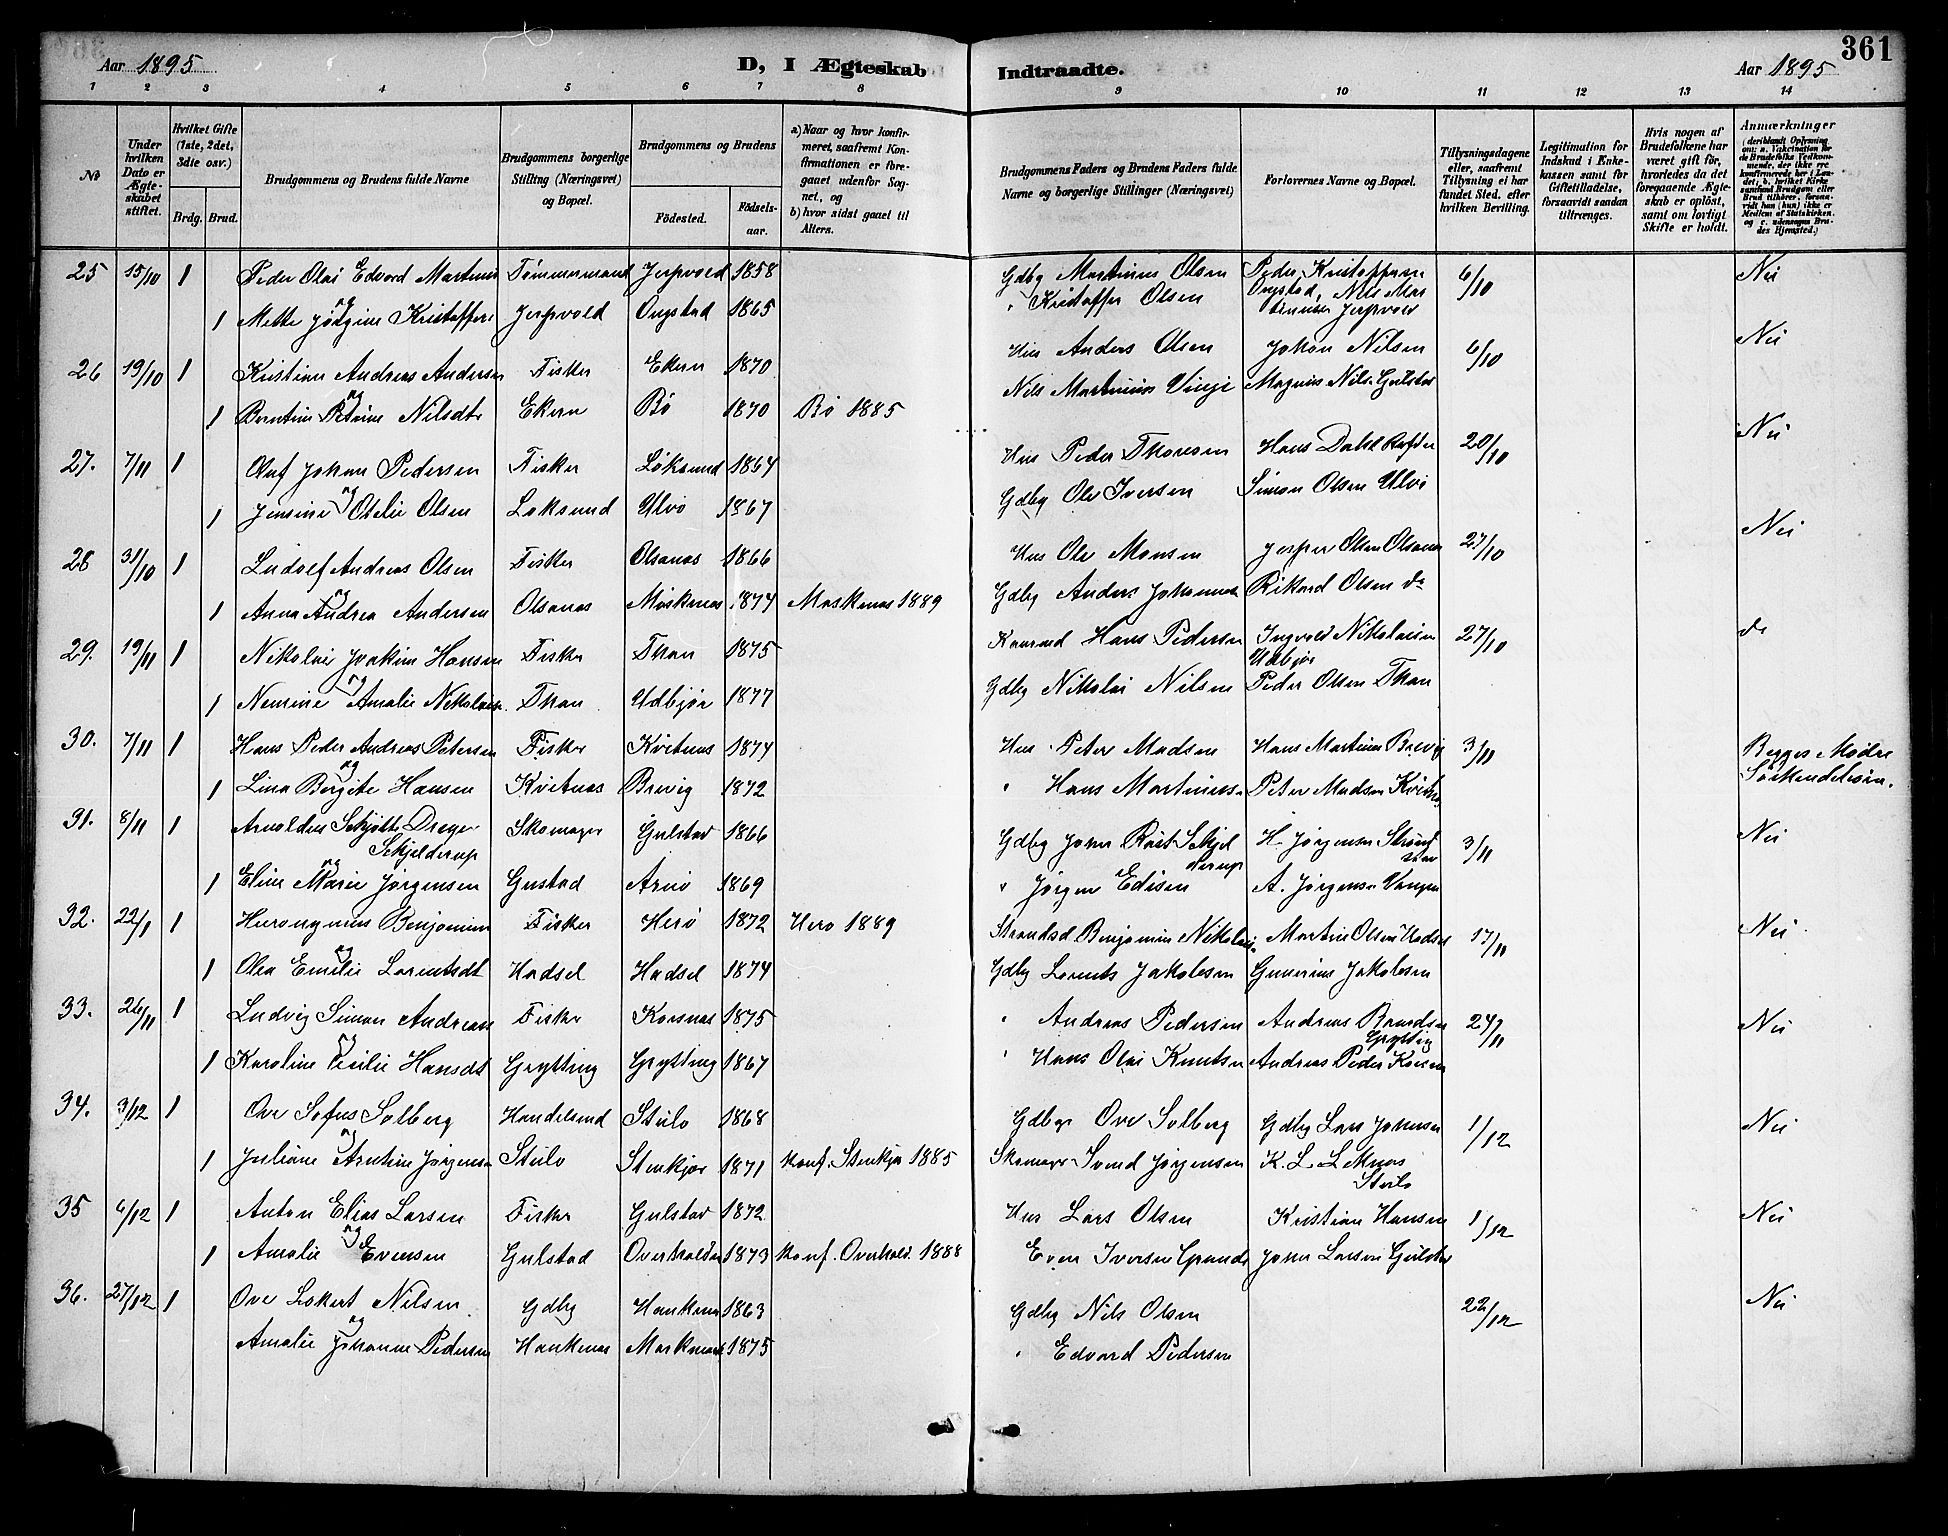 Aar 1895 D, I Ægteskab Indtraadte. Aar 1895 361
1 2 3 4 5 6 7 8 9 10 11 12 13 14
No
Under hvilken Dato er Ægteskabet stiftet.
Hvilket Gifte (1ste, 2det, 3die osv.)
Brdg. Brud.
Brudgommens og Brudens fulde Navne
Brudgommens borgerlige Stilling (Næringsvei) og Bopæl.
Brudgommens og Brudens
Fødested. Fødselsaar.
a) Naar og hvor konfirmeret, saafremt Konfirmationen er foregaaet udenfor Sognet, og
b) hvor sidst gaaet til Alters.
Brudgommens Faders og Brudens Faders fulde Navne og borgerlige Stillinger (Næringsvei)
Forlovernes Navne og Bopæl.
Tillysningsdagene eller, saafremt Tillysning ei har fundet Sted, efter hvilken Bevilling.
Legitimation for Indskud i Enkekassen samt for Giftetilladelse, forsaavidt saadan tiltrænges.
Hvis nogen af Brudefolkene har været gift før, hvorledes da det foregaaende Ægteskab er opløst, samt om lovligt Skifte er holdt.
Anmærkninger (deriblandt Oplysning om: a. Vakcination for de Brudefolks Vedkommende, der ikke ere konfirmerede her i Landet; b. hvilket Kirkesamfund Brudgom eller Brud tilhører, forsaavidt han (hun) ikke er Medlem af Statskirken, og c. udensogns Brudes Hjemsted.)
25 15/10 1 Peder Olai Edvard Martinus Tømmermand Jerpvold 1858 Gdbg Martinus Olsen Peder Kristoffersen 6/10 Nei
og Ongstad, Nils Mar
1 Mette Jørgine Kristoffers Jerpvold Ongstad 1865 " Kristoffer Olsen tinusen Jerpvold
26 19/10 1 Kristian Andreas Andersen Fisker Ekern 1870 Hus Anders Olsen Johan Nilsen 6/10 Nei
og
1 Berntine Petrine Nilsdtr Ekern Bø 1870 Bø 1885 Nils Martinus Vinje Magnus Nils. Gulstad
27. 7/11 1 Oluf Johan Pedersen Fisker Løksund 1864 Hus Peder Thoresen Hans Dahl 20/10 Nei
og
1 Jensine Otelie Olsen Løksund Ulvø 1867 Gdbg Ole Iversen Simon Olsen Ulvø
28 31/10 1 Ludolf Andreas Olsen Fisker Olsanæs 1866 Hus Ole Monsen Jesper Olsen Olsanæs 27/10 Nei
og
1 Anna Andrea Andersen Olsanæs Moskenæs 1874 Moskenæs 1889 Gdbg Anders Johannes Rikard Olsen do
29. 19/11 1 Nikolai Joakim Hansen Fisker Than 1875 Hans Pedersen Ingvald Nikolaisen 27/10 do
og Udbjør
1 Nemine Amalie Nikolaisen Than Udbjør 1877 Gdbg Nikolai Nilsen Peder Olsen Than
30. 7/11 1 Hans Peder Andreas Petersen Fisker Kvitnæs 1874 Hus Peter Madsen Hans Martinus Brevig 3/11 Begges Mødre
og
1 Lina Birgite Hansen Kvitnæs Brevig 1872 " Hans Martinus Peter Madsen Kvitnæs Søskendebørn.
31. 8/11 1 Arnoldus Schjøtte Dreyer Skomager Gulstad 1866 Gdbg Johan Røst Schjel H. Jørgensen Strand 3/11 Nei
Schjelderup derup stad
og
1 Eline Marie Jørgensen Gustad Arnø 1869 " Jørgen Edisen A. Jørgensen Vangen
32. 22/1 1 Hieronymus Benjamin Fisker Herø 1872 Herø 1889 Strandsd Benjamin Nikolai Martin Olsen Hadsel 17/11 Nei
og
1 Olea Emilie Lorentsdt Hadsel Hadsel 1874 Gdbg Lorents Jakobsen Gunerius Jakobsen
33. 26/11 1 Ludvig Simon Andreas Fisker Korsnæs 1875 " Andreas Pedersen Andreas Berndsen 24/11 Nei
og Grytting
1 Karoline Cecilie Hansdt Grytting Grytting 1867 " Hans Olai Knutsen Andreas Peder Korsn
34. 3/12 1 Ove Sofus Solberg Handelsmd Stulo 1868 Gdbgr Ove Solberg Gdbg Lars Johnsen 1/12 Nei
og
1 Juliane Arntine Jørgensen Stulo Stenkjær 1871 Konf. Stenkjær 1885 Skomager Svend Jørgensen K. L. Leknæs
Stulo
35 6/12 1 Anton Elias Larsen Fisker Gulstad 1872 Hus Lars Olsen Kristian Hansen 1/12 Nei
og
1 Amalie Evensen Gulstad Overhalden 1873 Konf. Overhald. 1888 Even Iversen Grande Johan Larsen Gulstad
36. 27/12 1 Ove Lokert Nilsen Gdbg Haukenæs 1863 Gdbg Nils Olsen 22/12 Nei
og
Amalie Johanne Pedersen Haukenæs 1875 " Edvard Pedersen